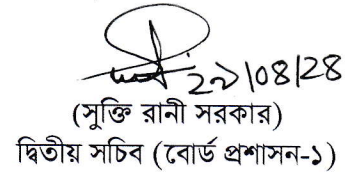 ২৯/০৪/২৪
(সুক্তি রানী সরকার)
দ্বিতীয় সচিব (বোর্ড প্রশাসন-১)